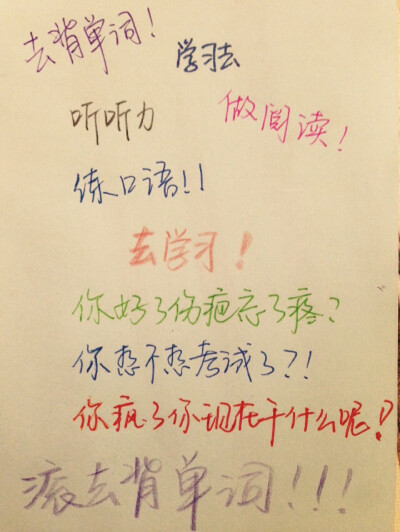 去背单词！
学习去
听听力
做阅读！
练口语！！
去学习！
你好了伤疤忘了疼？
你想不想考试了？！
你疯了你现在干什么呢？
滚去背单词！！！